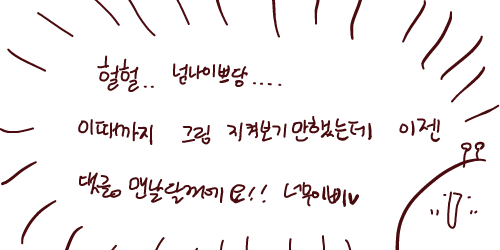 헐헐.. 넘나이쁘당....
이때까지 그림 지켜보기만했는데 이젠
댓글 맨날달꺼에요!! 너무이삐♥